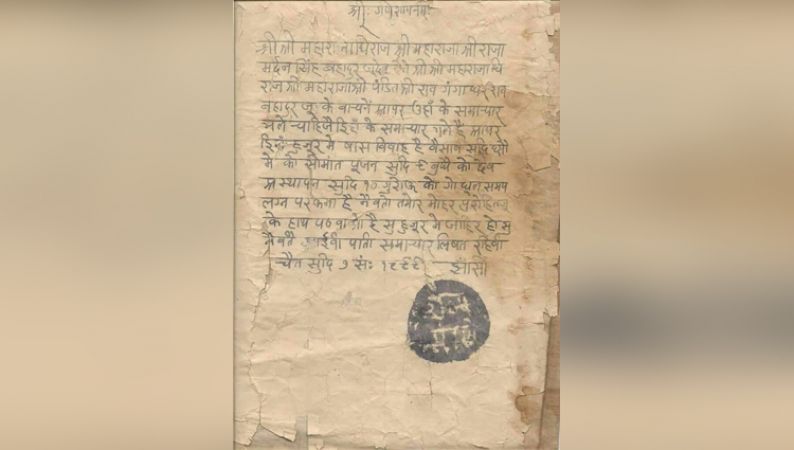 श्री: गणेशायनमः
श्री श्री महाराजाधिराज श्री महाराजा श्री राजा
मर्दन सिंह बहादुर जूदेव ऐते श्री श्री महाराजाधि
राज श्री महाराजा श्री पंडित श्री राव गंगाधर राव
बहादुर जू के बाचनें आपर उहाँ के समाचार
भले चाहिजै इहाँ के समाचार भले है आपर
इहाँ हजूर मे षास विवाह है वैसाष सुदि
मे को सीमांत पूजन सुदि ९ बुधे को देव
स्थापन सुदि १० गुरौऊ को गोधून समय
लग्न पर है नैवतो तमोर मोहर
के हाथ प० है सु हजूर मे जाहिर
नैवते आईवी पाती समाचार लिषत रहिवी
चैत सुदि ७ सं: १८९९ झांसी